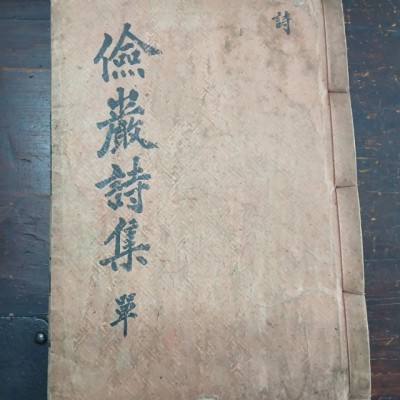 詩
儉巖詩集 單